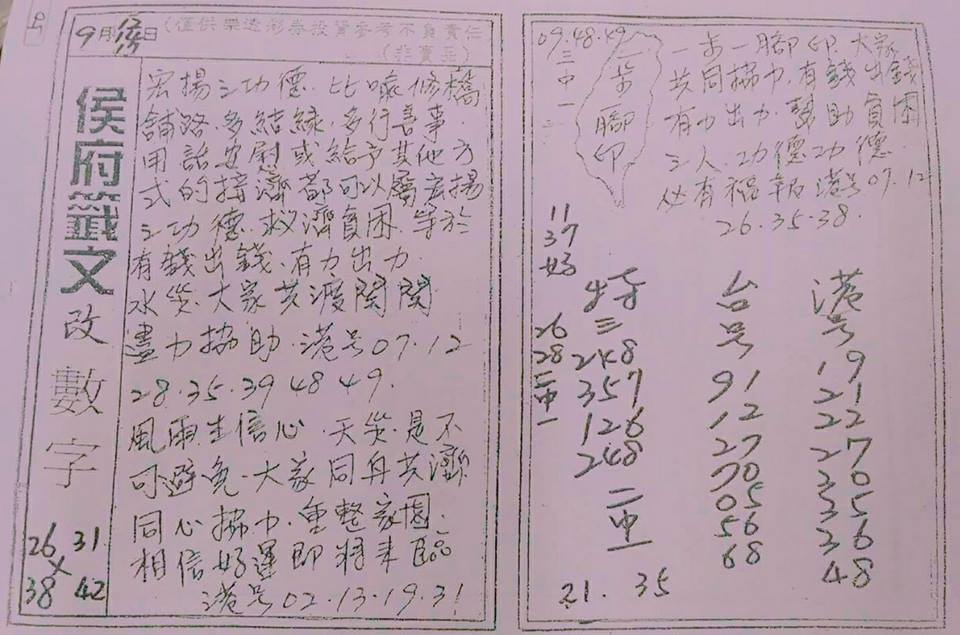 9月12/13/15日
(僅供樂透彩券投資參考不負責任
(非賣品)
侯府籤文改數字
26 31
×
38 42
宏揚之功德.比喻修橋
舖路.多結緣.多行善事.
用話安慰或給予其他方
式的接濟都可以屬宏揚
之功德.救濟貧困.等於
有錢出錢.有力出力.
水災.大家共渡関関
盡力協助.港号07.12
28.35.39 48 49.
風雨生信心.天災.是不
可避免.大家同舟共濟
同心協力.重整家園.
相信好運即將來臨
港号02.13.19.31
09.48.49
三中一
一步腳印
一步一腳印.大家
共同協力.有錢出錢
有力出力.幫助貧困
之人.功德功德.
必有福報 港号07.12
26.35.38
11
37
好
26
28
二中一
特三
248
357
126
248
二中一
21.35
台号
91
12
27
70
05
56
68
港号
19
21
22
27
30
35
36
48